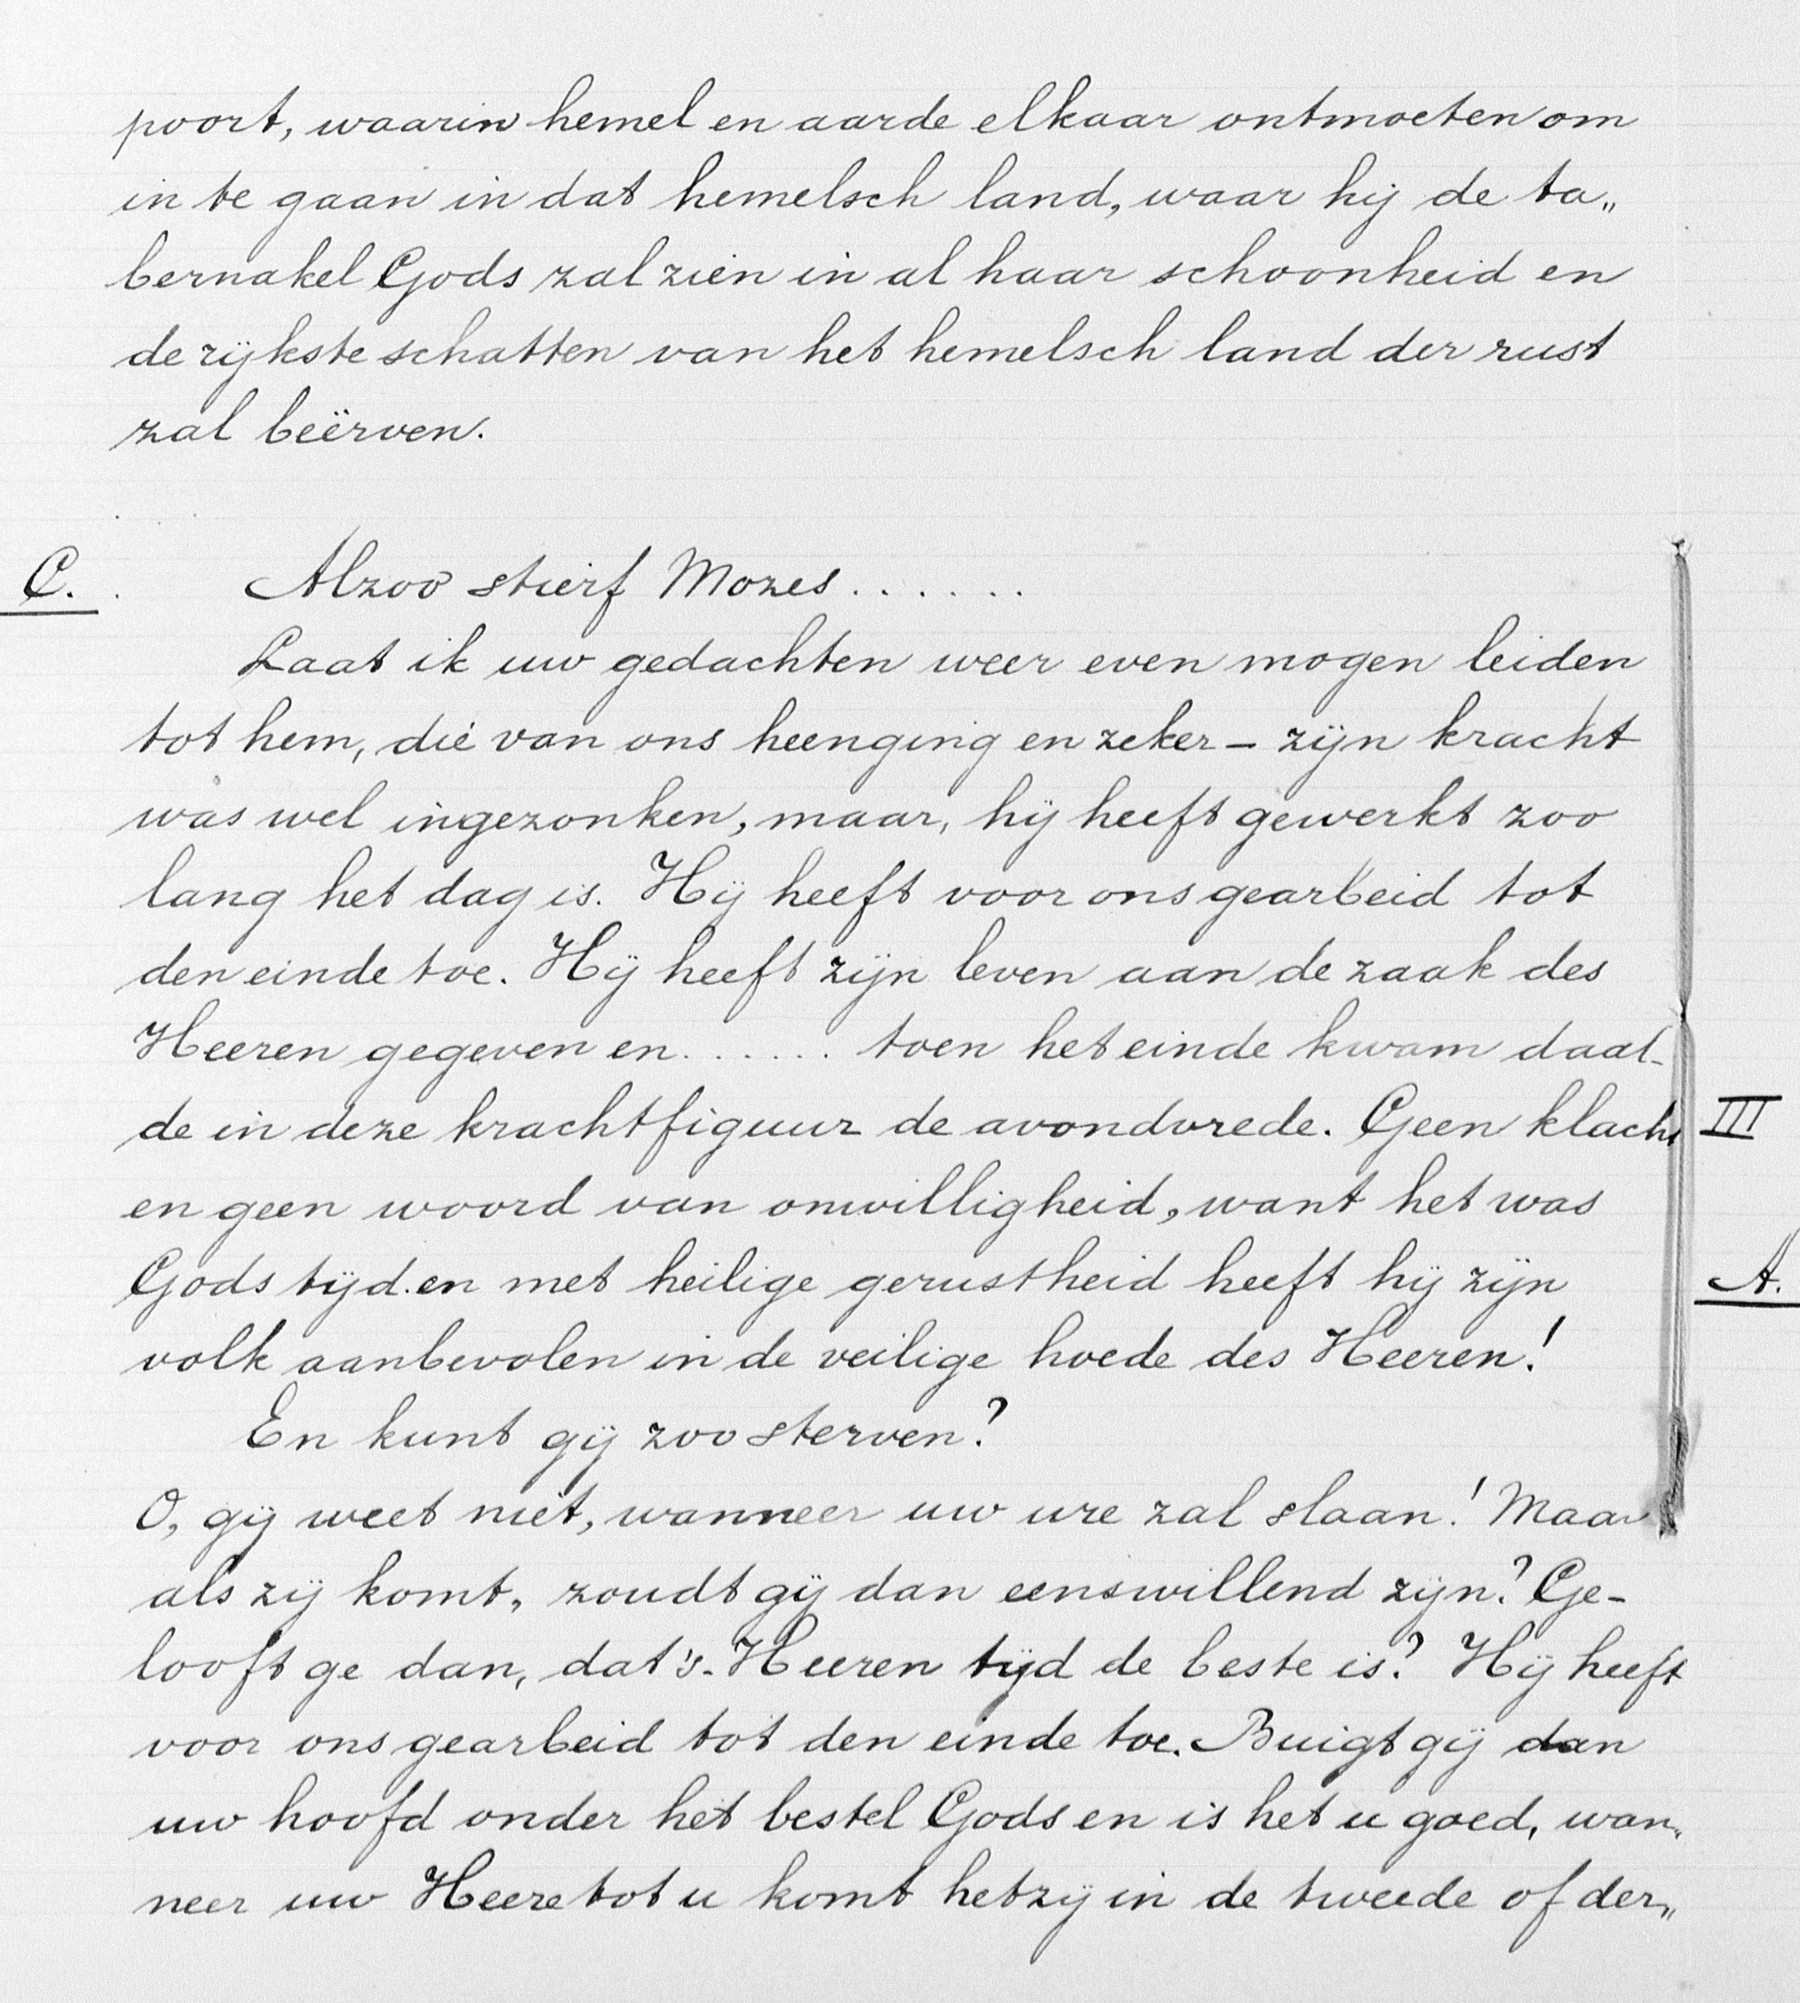 poort, waarin hemel en aarde elkaar ontmoeten om
in te gaan in dat hemelsch land, waar hij de ta„
bernakel Gods zal zien in al haar schoonheid en
de rijkste schatten van het hemelsch land der rust
zal beërven.
C. Alzoo stierf Mozes . . . . . .
Laat ik uw gedachten weer even mogen leiden
tot hem, die van ons heenging en zeker – zijn kracht
was wel ingezonken, maar, hij heeft gewerkt zoo
lang het dag is. Hij heeft voor ons gearbeid tot
den einde toe. Hij heeft zijn leven aan de zaak des
Heeren gegeven en . . . . . . toen het einde kwam daal-
de in deze krachtfiguur de avondvrede. Geen klacht III
en geen woord van onwilligheid, want het was
Gods tijd. en met heilige gerustheid heeft hij zijn A.
volk aanbevolen in de veilige hoede des Heeren!
En kunt gij zoo sterven?
O, gij weet niet, wanneer uw ure zal slaan! Maar
als zij komt, zoudt gij dan eenswillend zijn? Ge-
looft ge dan, dat 's-Heeren tijd de beste is? Hij heeft
voor ons gearbeid tot den einde toe. Buigt gij dan
uw hoofd onder het bestel Gods en is het u goed, wan„
neer uw Heere tot u komt hetzij in de tweede of der„